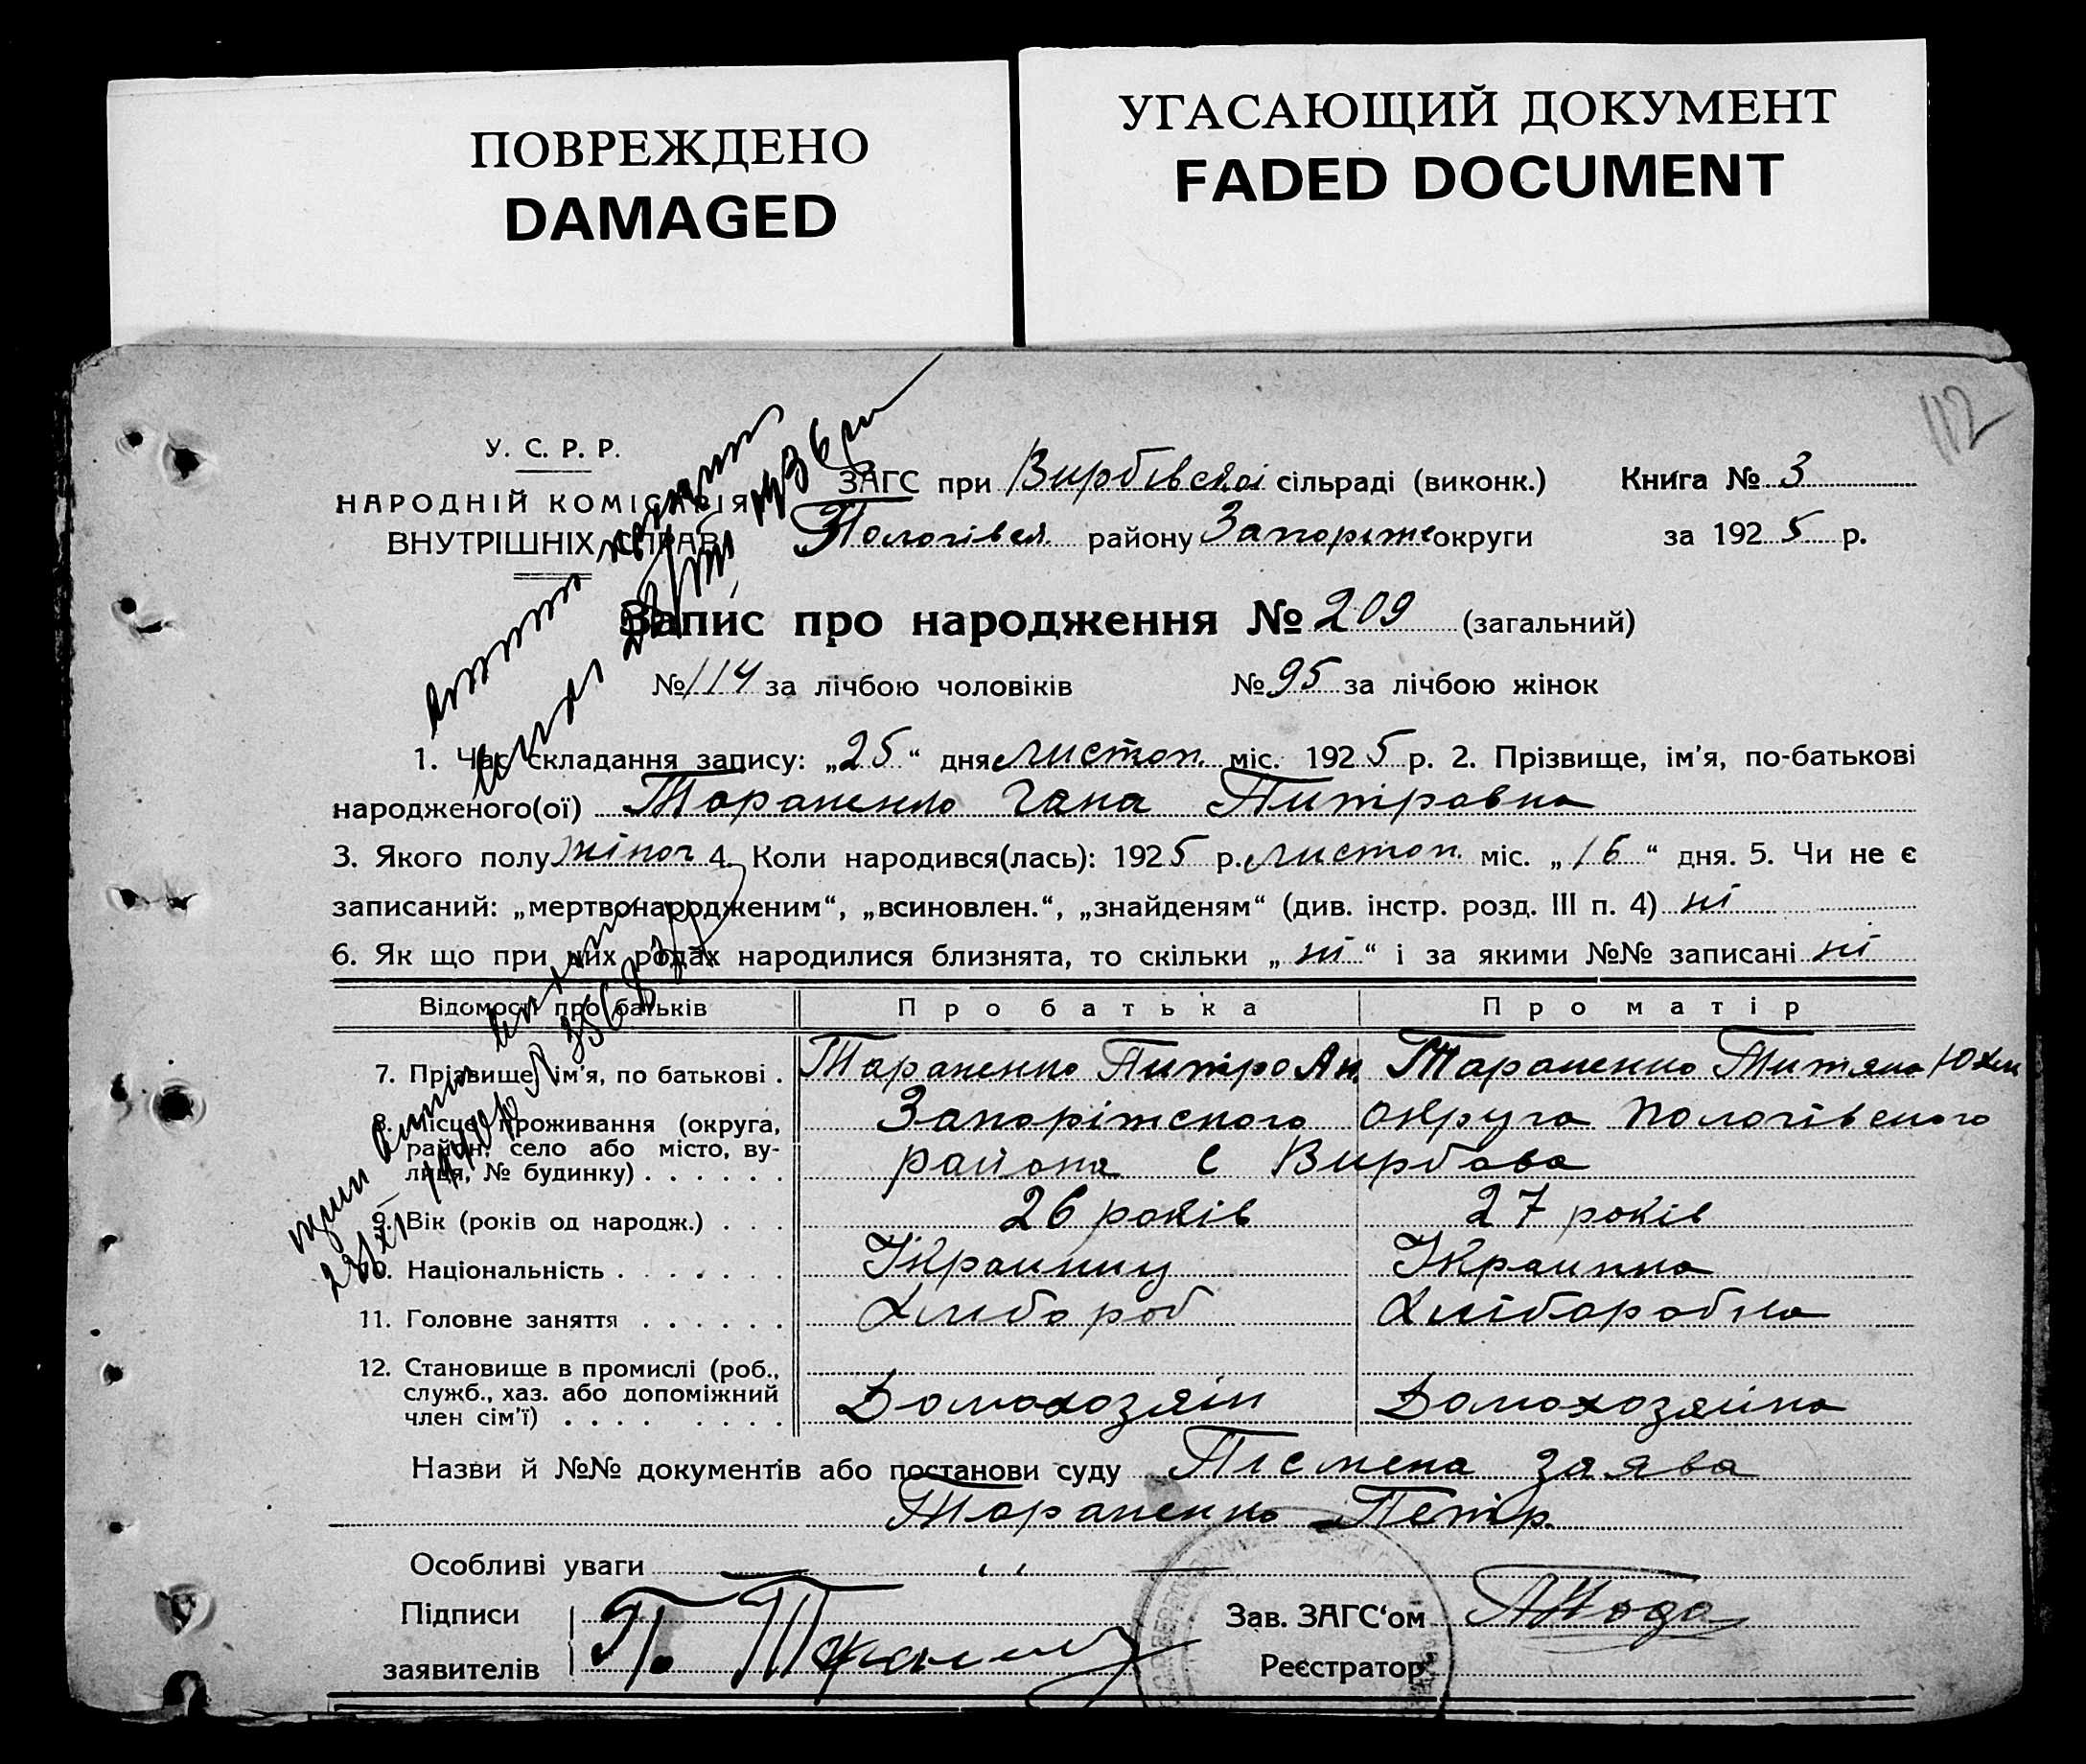 ПОВРЕЖДЕНО
DAMAGED
УГАСАЮЩИЙ ДОКУМЕНТ
FADED DOCUMENT
112
У. С. Р. Р.
НАРОДНІЙ КОМІСАРІЯТ
ВНУТРІШНІХ СПРАВ
ЗАГС при Вирбівскої сільраді (виконк.) Книга № 3
Пологівск. району Запоріжс округи за 1925 р.
Запис про народження № 209 (загальний)
№ 114 за лічбою чоловіків № 95 за лічбою жінок
1. Час складання запису: „25“ дня листоп. міс. 1925 р. 2. Прізвище, ім'я, по-батькові
народженого(ої) Тараненко Гана Питровна
3. Якого полу жіноч 4. Коли народився(лась): 1925 р. листоп. міс. „16“ дня. 5. Чи не є
записаний: „мертвонародженим“, „всиновлен.“, „знайденям“ (див. інстр. розд. III п. 4) ні
6. Як що при цих родах народилися близнята, то скільки „ні“ і за якими №№ записані ні
Відомості про батьків Про батька Про матір
7. Прізвище, ім'я, по батькові . Тараненко Питро Ан. Тараненко Титяна Юхим
8. Місце проживання (округа, Запоріжского округа Пологівского
район, село або місто, ву-
лиця, № будинку) . . . . . . района с Вирбова
9. Вік (років од народж.) . . . 26 років 27 років
10. Національність . . . . . . . Украинец Украинка
11. Головне заняття . . . . . . Хлибороб Хліборобка
12. Становище в промислі (роб.,
служб., хаз. або допоміжний
член сім'ї) . . . . . . . . Домохозяін Домохозяйка
Назви й №№ документів або постанови суду Písмена заява
Тараненко Петр.
Особливі уваги
Підписи
заявителів
П. Таран
Зав. ЗАГС'ом
Реєстратор